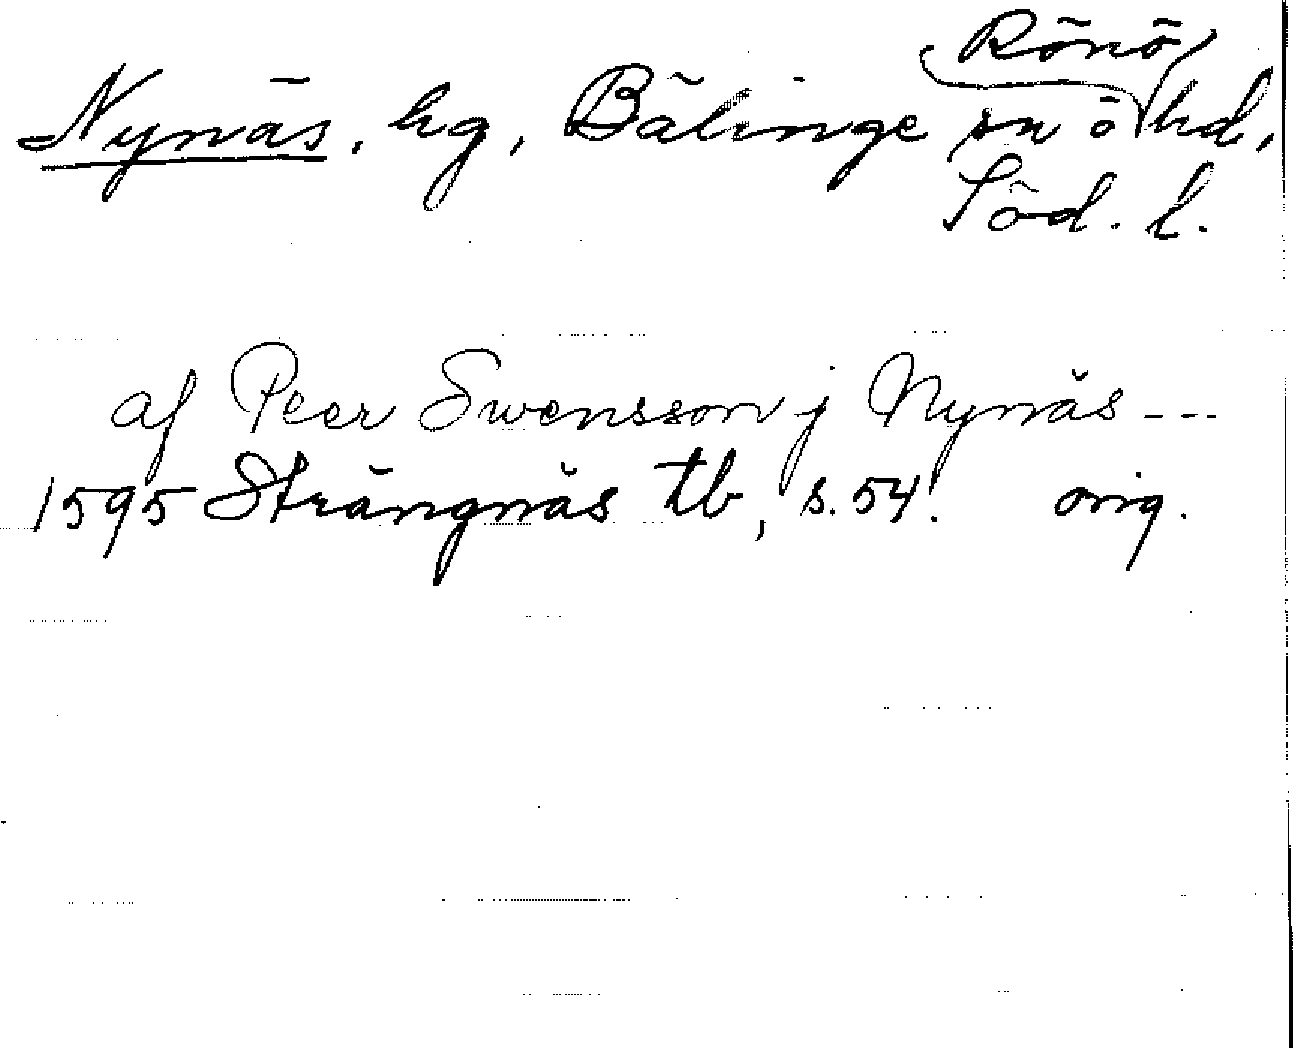 Rönö
Nynäs, hg, Bälinge sn ö hd,
Söd. l.
af Peer Swensson j Nynäs ---
1595 Strängnäs tb, s. 54. orig.